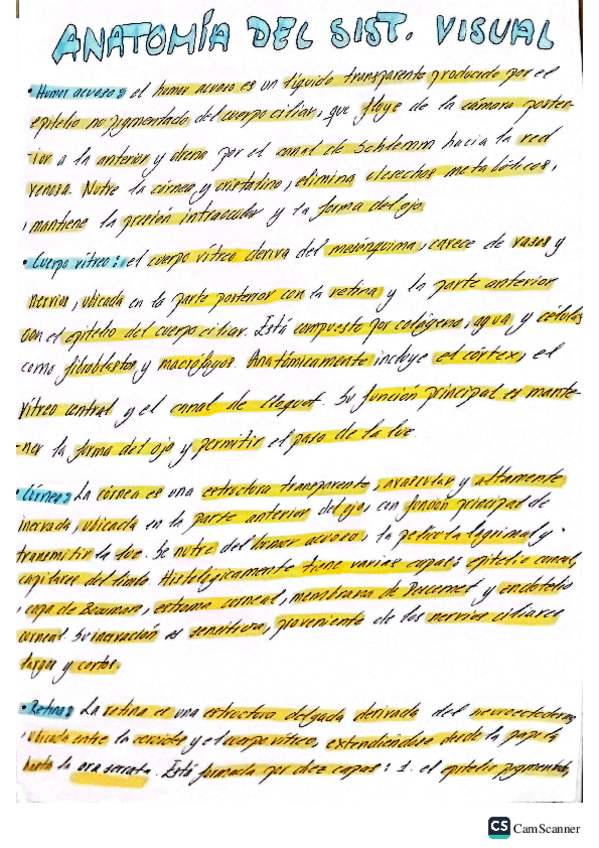 ANATOMÍA DEL SIST. VISUAL
• Humor acuoso: el humor acuoso es un líquido transparente producido por el
epitelio no pigmentado del cuerpo ciliar, que fluye de la cámara poster-
-ior a la anterior y drena por el canal de Schlemm hacia la red
venosa. Nutre la córnea y cristalino, elimina desechos metabólicos,
, mantiene la presión intraocular y la forma del ojo.
• Cuerpo vítreo: el cuerpo vítreo deriva del mesénquima, carece de vasos y
nervios, ubicada en la parte posterior con la retina y la parte anterior
con el epitelio del cuerpo ciliar. Está compuesto por colágeno, agua y células
como fibroblastos y macrófagos. Anatómicamente incluye el córtex, el
vítreo central y el canal de Cloquet. Su función principal es mante-
-ner la forma del ojo y permitir el paso de la luz.
• Córnea: La córnea es una estructura transparente, avascular y altamente
inervada, ubicada en la parte anterior del ojo, con función principal de
transmitir la luz. Se nutre del humor acuoso, la película lagrimal y
capilares del limbo. Histológicamente tiene varias capas: epitelio corneal
, capa de Bowman, estroma corneal, membrana de Descemet y endotelio
corneal. Su inervación es sensitiva, proveniente de los nervios ciliares
largos y cortos.
• Retina: La retina es una estructura delgada derivada del neuroectodermo
, ubicada entre la coroides y el cuerpo vítreo, extendiéndose desde la papila
hasta la ora serrata. Está formada por diez capas: 1. el epitelio pigmentado,
CS CamScanner